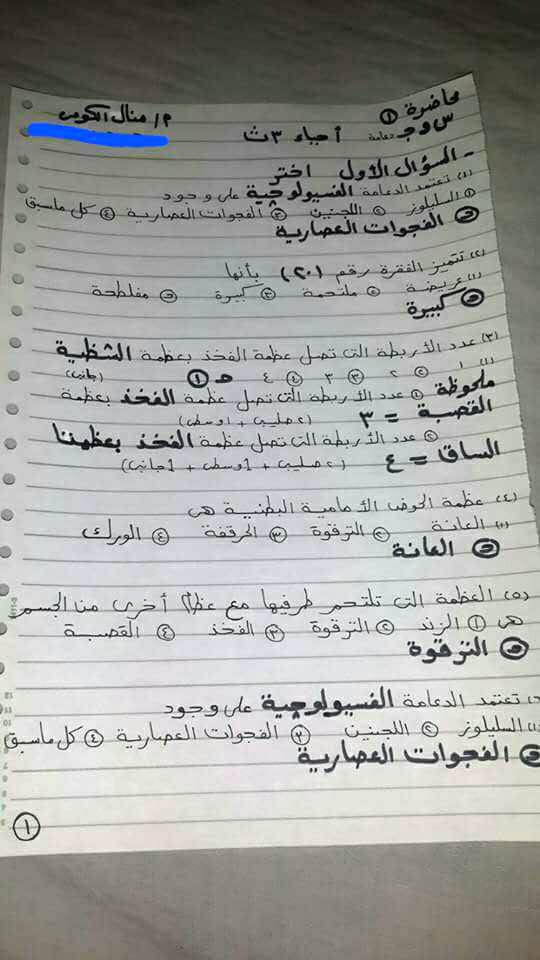 محاضرة ①
س و جـ دعامة أحياء ٣ ث م/ منال الكومي
- السؤال الأول اختر
(١) تعتمد الدعامة الفسيولوجية على وجود
① السليلوز ② اللجنين ③ الفجوات العصارية ④ كل ماسبق
جـ الفجوات العصارية
(٢) تتميز الفقرة رقم (٢٠) بأنها
(١) عريضة ② ملتحمة ③ كبيرة ④ مفلطحة
جـ كبيرة
(٣) عدد الأربطة التى تصل عظمة الفخذ بعظمة الشظية
(١) ١ ② ٢ ③ ٣ ④ ٤ جـ ① (جانبى)
ملحوظة ① عدد الأربطة التى تصل عظمة الفخذ بعظمة
القصبة = ٣ (٢ صليبى + ١ وسطى)
② عدد الأربطة التى تصل عظمة الفخذ بعظمتا
الساق = ٤ (٢ صليبى + 1 وسطى + 1 جانبى)
(٤) عظمة الحوض الأمامية البطنية هى
(١) العانة ② الترقوة ③ الحرقفة ④ الورك
جـ العانة
(٥) العظمة التى تلتحم طرفيها مع عظام أخرى من الجسم
هى ① الزند ② الترقوة ③ الفخذ ④ القصبة
جـ الترقوة
تعتمد الدعامة الفسيولوجية على وجود
(١) السليلوز ② اللجنين ③ الفجوات العصارية ④ كل ماسبق
جـ الفجوات العصارية
①